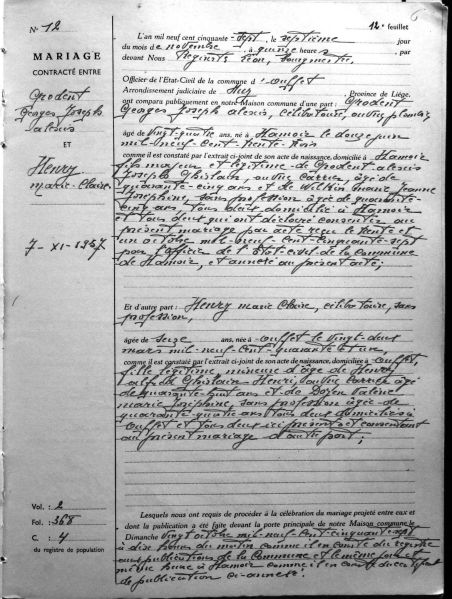 N° 12
12e feuillet
MARIAGE
CONTRACTÉ ENTRE
Grodent
Georges Joseph
Alexis
ET
Henry
Marie-Claire
7-XI-1957
L'an mil neuf cent cinquante-sept, le septième jour
du mois de novembre, à quinze heures
devant Nous Léon, bourgmestre,
Officier de l'Etat-Civil de la commune d'Ouffet
Arrondissement judiciaire de Huy, Province de Liège,
ont comparu publiquement en notre Maison commune d'une part : Grodent
Georges Joseph Alexis, célibataire, ouvrier plombier,
âgé de vingt-quatre ans, né à Hamoir le douze juin
mil-neuf-cent trente-trois
comme il est constaté par l'extrait ci-joint de son acte de naissance, domicilié à Hamoir
fils majeur et légitime de Grodent Alexis
Joseph Ghislain, ouvrier carrier, âgé de
quarante-cinq ans et de Wilkin Marie Jeanne
Joséphine, sans profession âgée de quarante-
cinq ans, tous deux domiciliés à Hamoir
et tous deux qui ont déclaré consentir au
présent mariage par acte reçu le trente et
un octobre mil-neuf-cent-cinquante-sept
par l'Officier de l'Etat-civil de la commune
de Hamoir, et annexé au présent acte;
Et d'autre part : Henry Marie Claire, célibataire, sans
profession,
âgée de seize ans, née à Ouffet le vingt-deux
mars mil-neuf-cent-quarante et un,
comme il est constaté par l'extrait ci-joint de son acte de naissance, domiciliée à Ouffet,
fille légitime, mineure d'âge de Henry
Alfred Ghislain Henri, ouvrier carrier âgé
de quarante-huit ans et de Valérie
Marie Joséphine, sans profession âgée de
quarante-quatre ans tous deux domiciliés à
Ouffet et tous deux ici présents et consentant
au présent mariage d'autre part;
Vol. : 2
Fol. : 368
C. : 4
du registre de population
Lesquels nous ont requis de procéder à la célébration du mariage projeté entre eux et
dont la publication a été faite devant la porte principale de notre Maison commune le
Dimanche vingt octobre mil-neuf-cent-cinquante-sept
à dix heures du matin comme il en conste du registre
aux publications de la Commune et le même jour et
même heure à Hamoir comme il en conste du certificat
de publication ci-annexé.